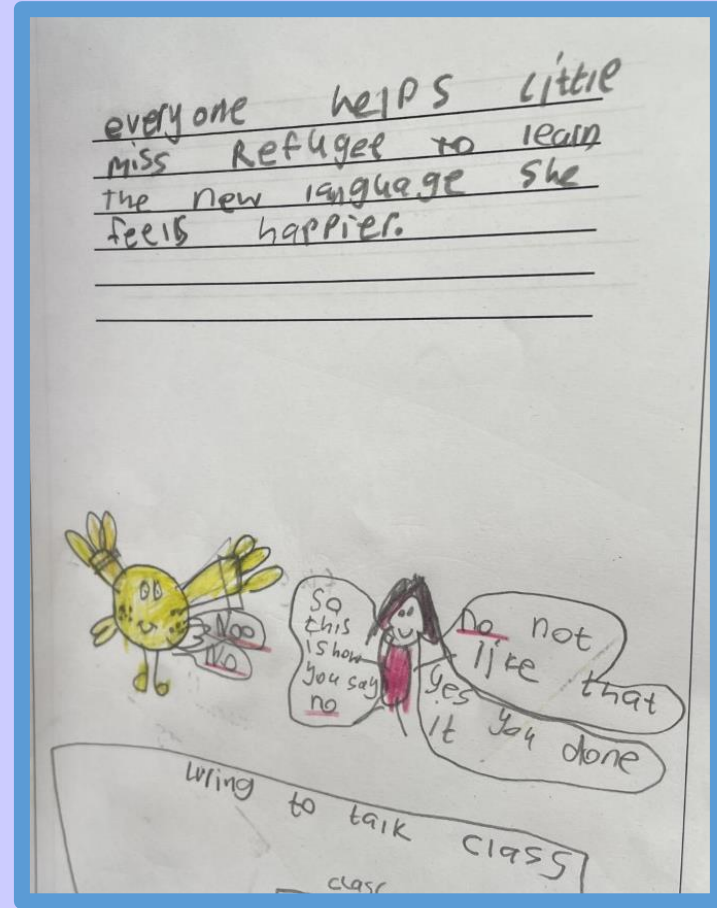 everyone helps little
miss Refugee to learn
the new language she
feels happier.
Noo
No
So
this
is how
you say
no
no not
like that
yes you done
it
luring to talk class
class